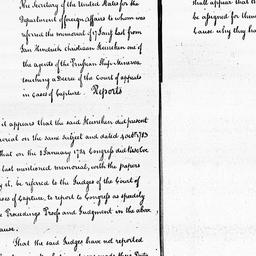 The Secretary of the United States for the
Department of foreign Affairs to whom was
referred the memorial of 17 Jany last from
Jan Hendrick Christiaan Heineken one of
the agents of the Prussian Ship Minerva
touching a Decree of the Court of appeals
in cases of Capture. Reports
it appears that the said Heineken did present
orial on the same subject and dated 4 octr 1783
that on the 2 January 1784 Congress did Resolve
last mentioned memorial, with the papers
y it, be referred to the Judges of the Court of
ses of Capture, to report to Congress as speedily
e Proceedings Proofs and Judgment in the above
ause.
That the said Judges have not reported
shall appear that
be assigned for
Cause why they ha